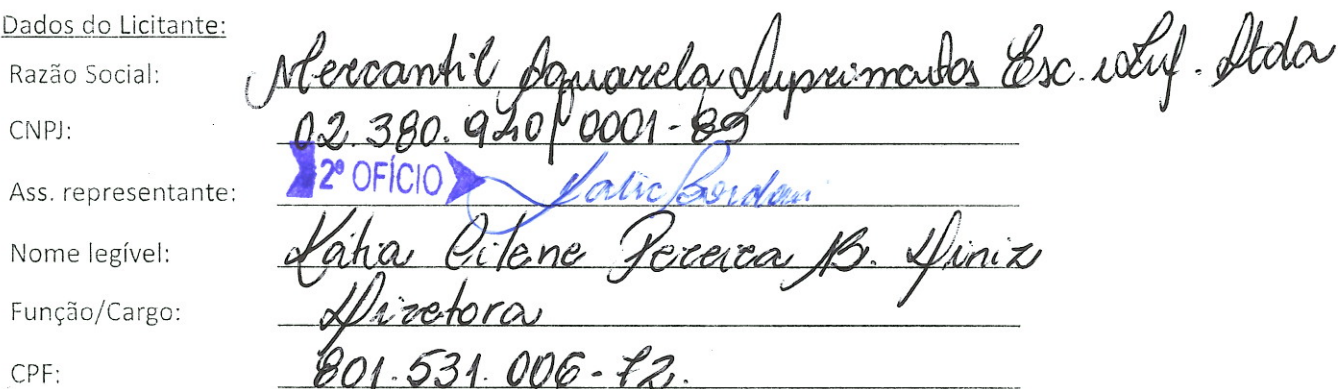 Dados do Licitante:
Razão Social: Mercantil Aquarela Suprimentos Esc. e Inf. Ltda
CNPJ: 02.380.920/0001-89
Ass. representante: 2º OFÍCIO
Nome legível: Kátia Cilene Pereira B. Diniz
Função/Cargo: Diretora
CPF: 801.531.006-72.